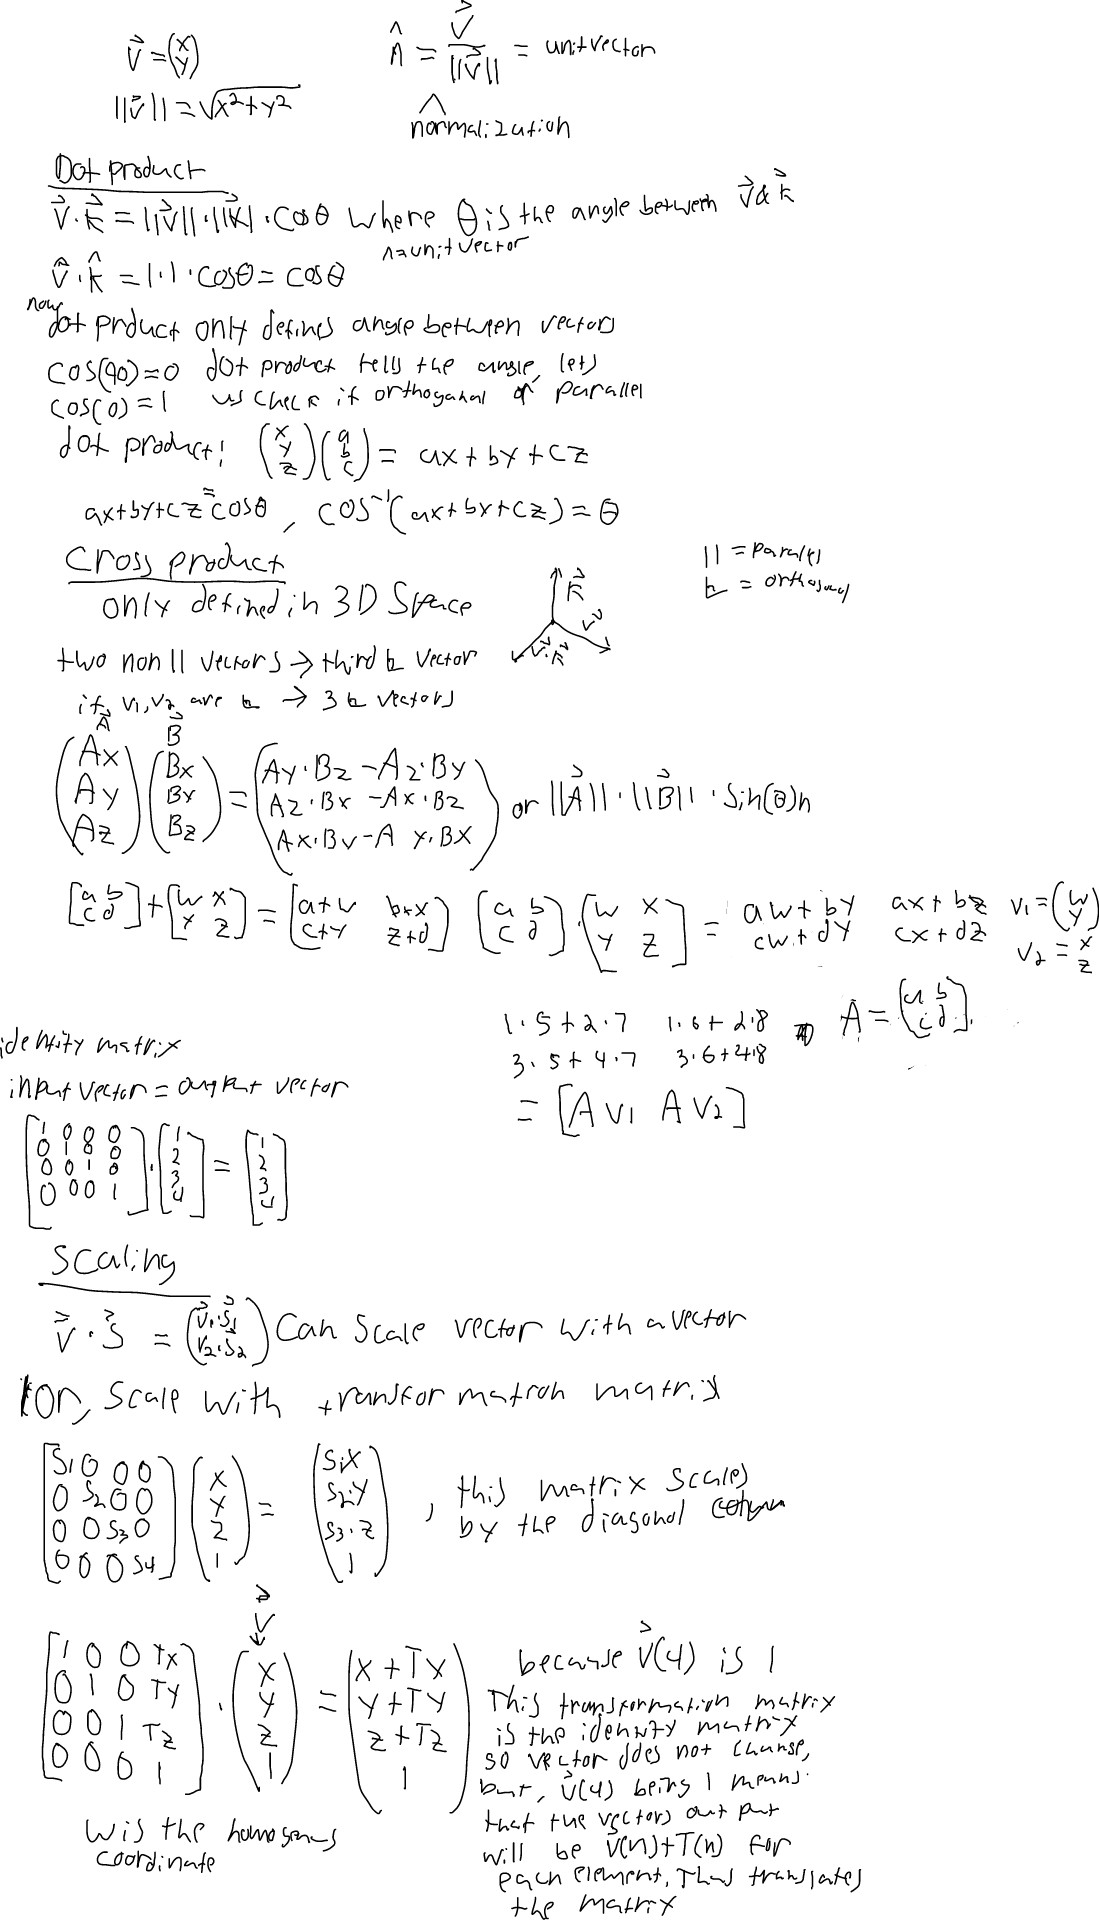 v⃗ = (x y)
n̂ = v⃗ / ||v⃗|| = unit vector
||v⃗|| = √x²+y²
^
normalization
Dot product
v⃗ · k⃗ = ||v⃗|| · ||k⃗| · cosθ where θ is the angle between v⃗ & k⃗
^ = unit vector
v̂ · k̂ = 1·1·cosθ = cosθ
now
dot prduct only defines angle between vectors
cos(90)=0 dot product tells the angle, lets
cos(0)=1 us check if orthogonal or parallel
dot product! (x y z)(a b c) = ax + by + cz
ax+by+cz = cosθ , cos⁻¹(ax+by+cz) = θ
Cross product
|| = parallel
= orthogonal
only defined in 3D Space
k⃗
v⃗
v⃗·k⃗
two non || vectors → third b vector
if v1, v2 are b → 3 b vectors
A⃗ B⃗
(Ax Ay Az)(Bx By Bz) = (Ay·Bz - Az·By Az·Bx - Ax·Bz Ax·By - Ay·Bx) or ||A⃗|| · ||B⃗|| · Sin(θ)n
[a b c d] + [w x y z] = [a+w b+x c+y z+d] [a b c d] · [w x y z] = aw+by ax+bz cw+dy cx+dz v1 = (w y)
v2 = x z
1·5+2·7 1·6+2·8
3·5+4·7 3·6+4·8
A = [a b c d]
= [Av1 Av2]
identity matrix
input vector = output vector
[1 0 0 0 0 1 0 0 0 0 1 0 0 0 0 1] · [1 2 3 4] = [1 2 3 4]
Scaling
v⃗ · s⃗ = (v⃗1·s⃗1 v2·s2) Can Scale vector with a vector
or, scale with transformation matrix
[S1 0 0 0 0 S2 0 0 0 0 S3 0 0 0 0 S4] (x y z 1) = (S1x S2·y S3·z 1) , this matrix scales
by the diagonal column
v⃗
↓
[1 0 0 Tx 0 1 0 Ty 0 0 1 Tz 0 0 0 1] · (x y z 1) = (x+Tx y+Ty z+Tz 1)
because v⃗(4) is 1
This transformation matrix
is the identity matrix
so vector does not change,
but, v⃗(4) being 1 means
that the vectors out put
will be v⃗(n)+T(n) for
each element, Thus translates
the matrix
W is the homogenus
coordinate